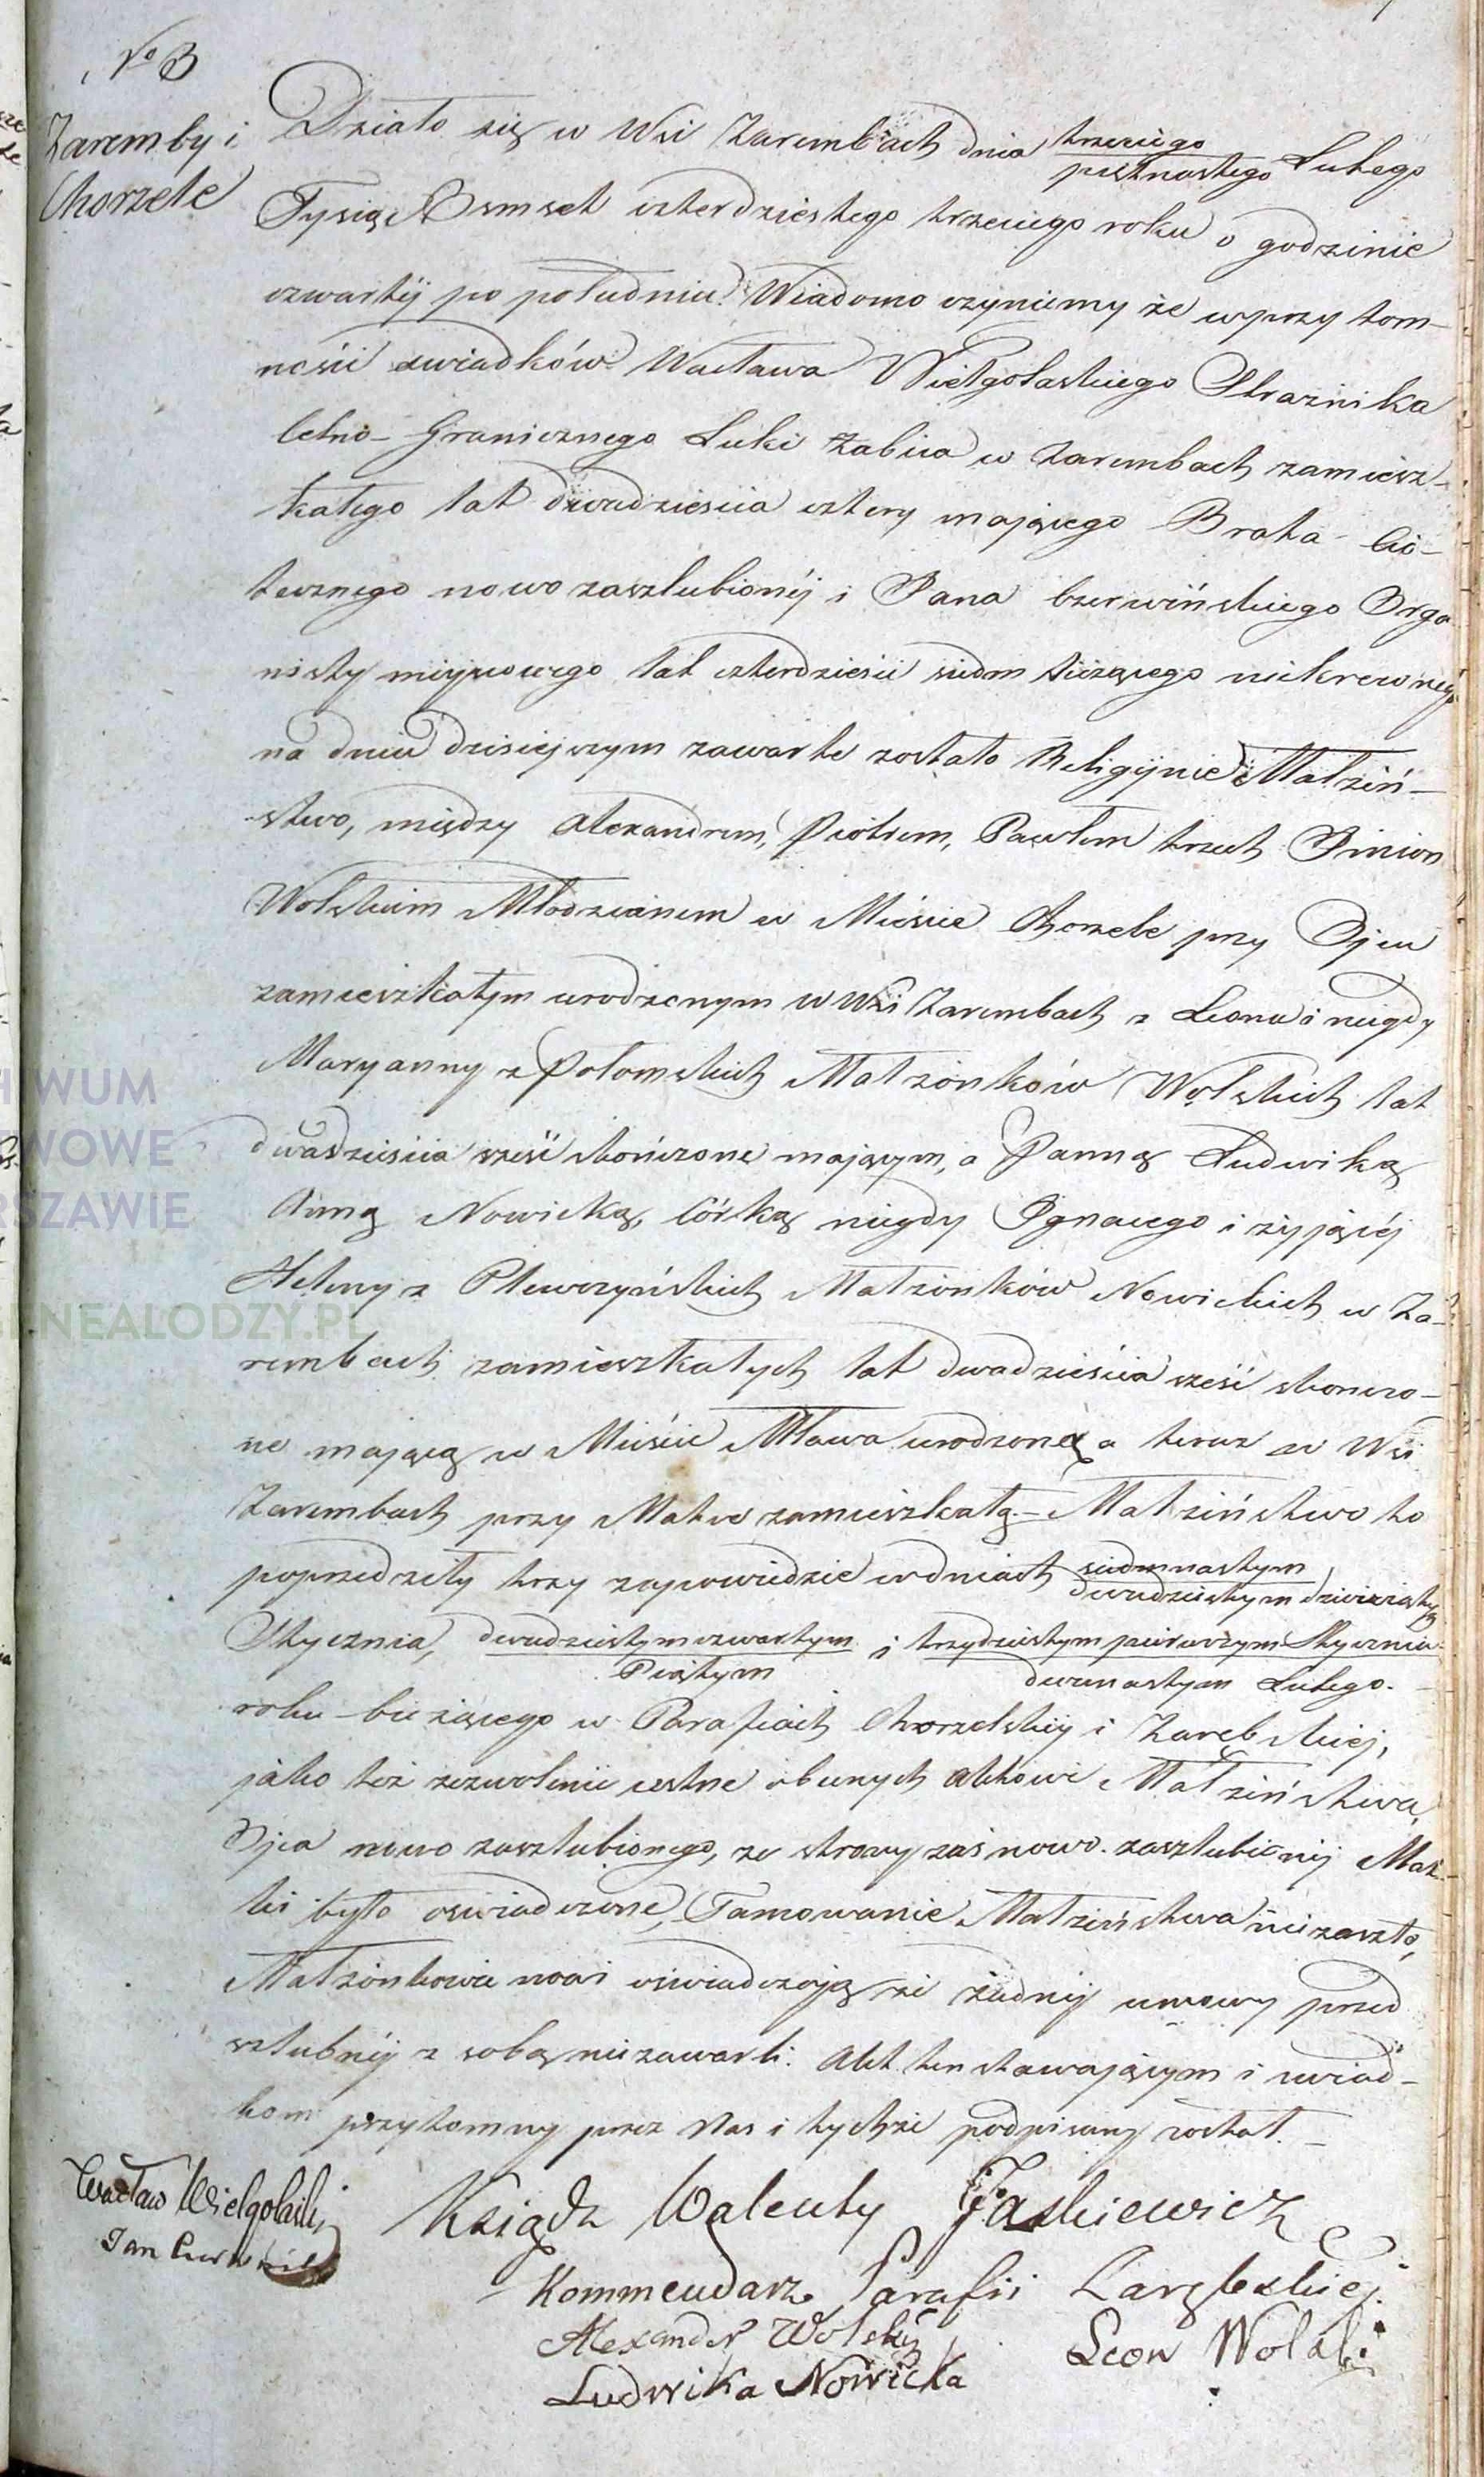 No 3
Zaremby i
Chorzele
Działo się w Wsi Zarembach dnia trzeciego Lutego
piętnastego
Tysiąc Osmset czterdziestego trzeciego roku o godzinie
czwartéj po południu. Wiadomo czyniemy że w przytom-
ności świadków Wacława Wielgolaskiego Strażnika
Celno-Granicznego Luki Żabica w Zarembach zamiesz-
kałego lat dwadzieścia cztery mającego Brata Cio-
tecznego nowo zaszlubionéj i Pana Czerwińskiego Orga-
nisty miejscowego lat czterdzieści siedm liczącego niekrewnego
na dniu dzisiejszym zawarte zostało Religijnie Małżeń-
stwo, między Alexandrem, Piotrem, Pawłem trzech Imion
Wolskim Młodzianem w Mieście Chorzele przy Ojcu
zamieszkałym urodzonym w Wsi Zarembach z Leona i niegdy
Maryanny z Połomskich Małżonków Wolskich lat
dwadzieścia sześć skończone mającym, a Panną Ludwiką
Anną Nowicką, Córką niegdy Ignacego i żyjącéj
Heleny z Plewczyńskich Małżonków Nowickich w Za-
rembach zamieszkałych lat dwadzieścia sześć skończo-
ne mającą w Mieście Mława urodzoną a teraz w Wsi
Zarembach przy Matce zamieszkałą.- Małżeństwo to
poprzedziły trzy zapowiedzie w dniach siedmnastym
dwudziestym dziewiątym
Stycznia, dwudziestym czwartym i trzydziestym pierwszym Stycznia
Piątym dwunastym Lutego.
roku bieżącego w Parafiach Chorzelskiéj i Zarębskiéj,
jako też zezwolenie ustne obecnych Aktowi Małżeństwa,
Ojca nowo zaszlubionego, ze strony zaś nowo zaszlubionéj Mat-
ki było oświadczone, Tamowanie Małżeństwa niezaszło,
Małżonkowie nowi oświadczają że żadnéj umowy przed
szlubnéj z sobą niezawarli. Akt ten stawającym i świad-
kom przytomny przez Nas i tychże podpisany został.
Wacław Wielgolaski
Jan
Ksiądz Walenty Jaskiewicz
Kommendarz Parafii Zarębskiej
Alexander Wolski Leon Wolski
Ludwika Nowicka
WUM
WOWE
RSZAWIE
GENEALODZY.PL